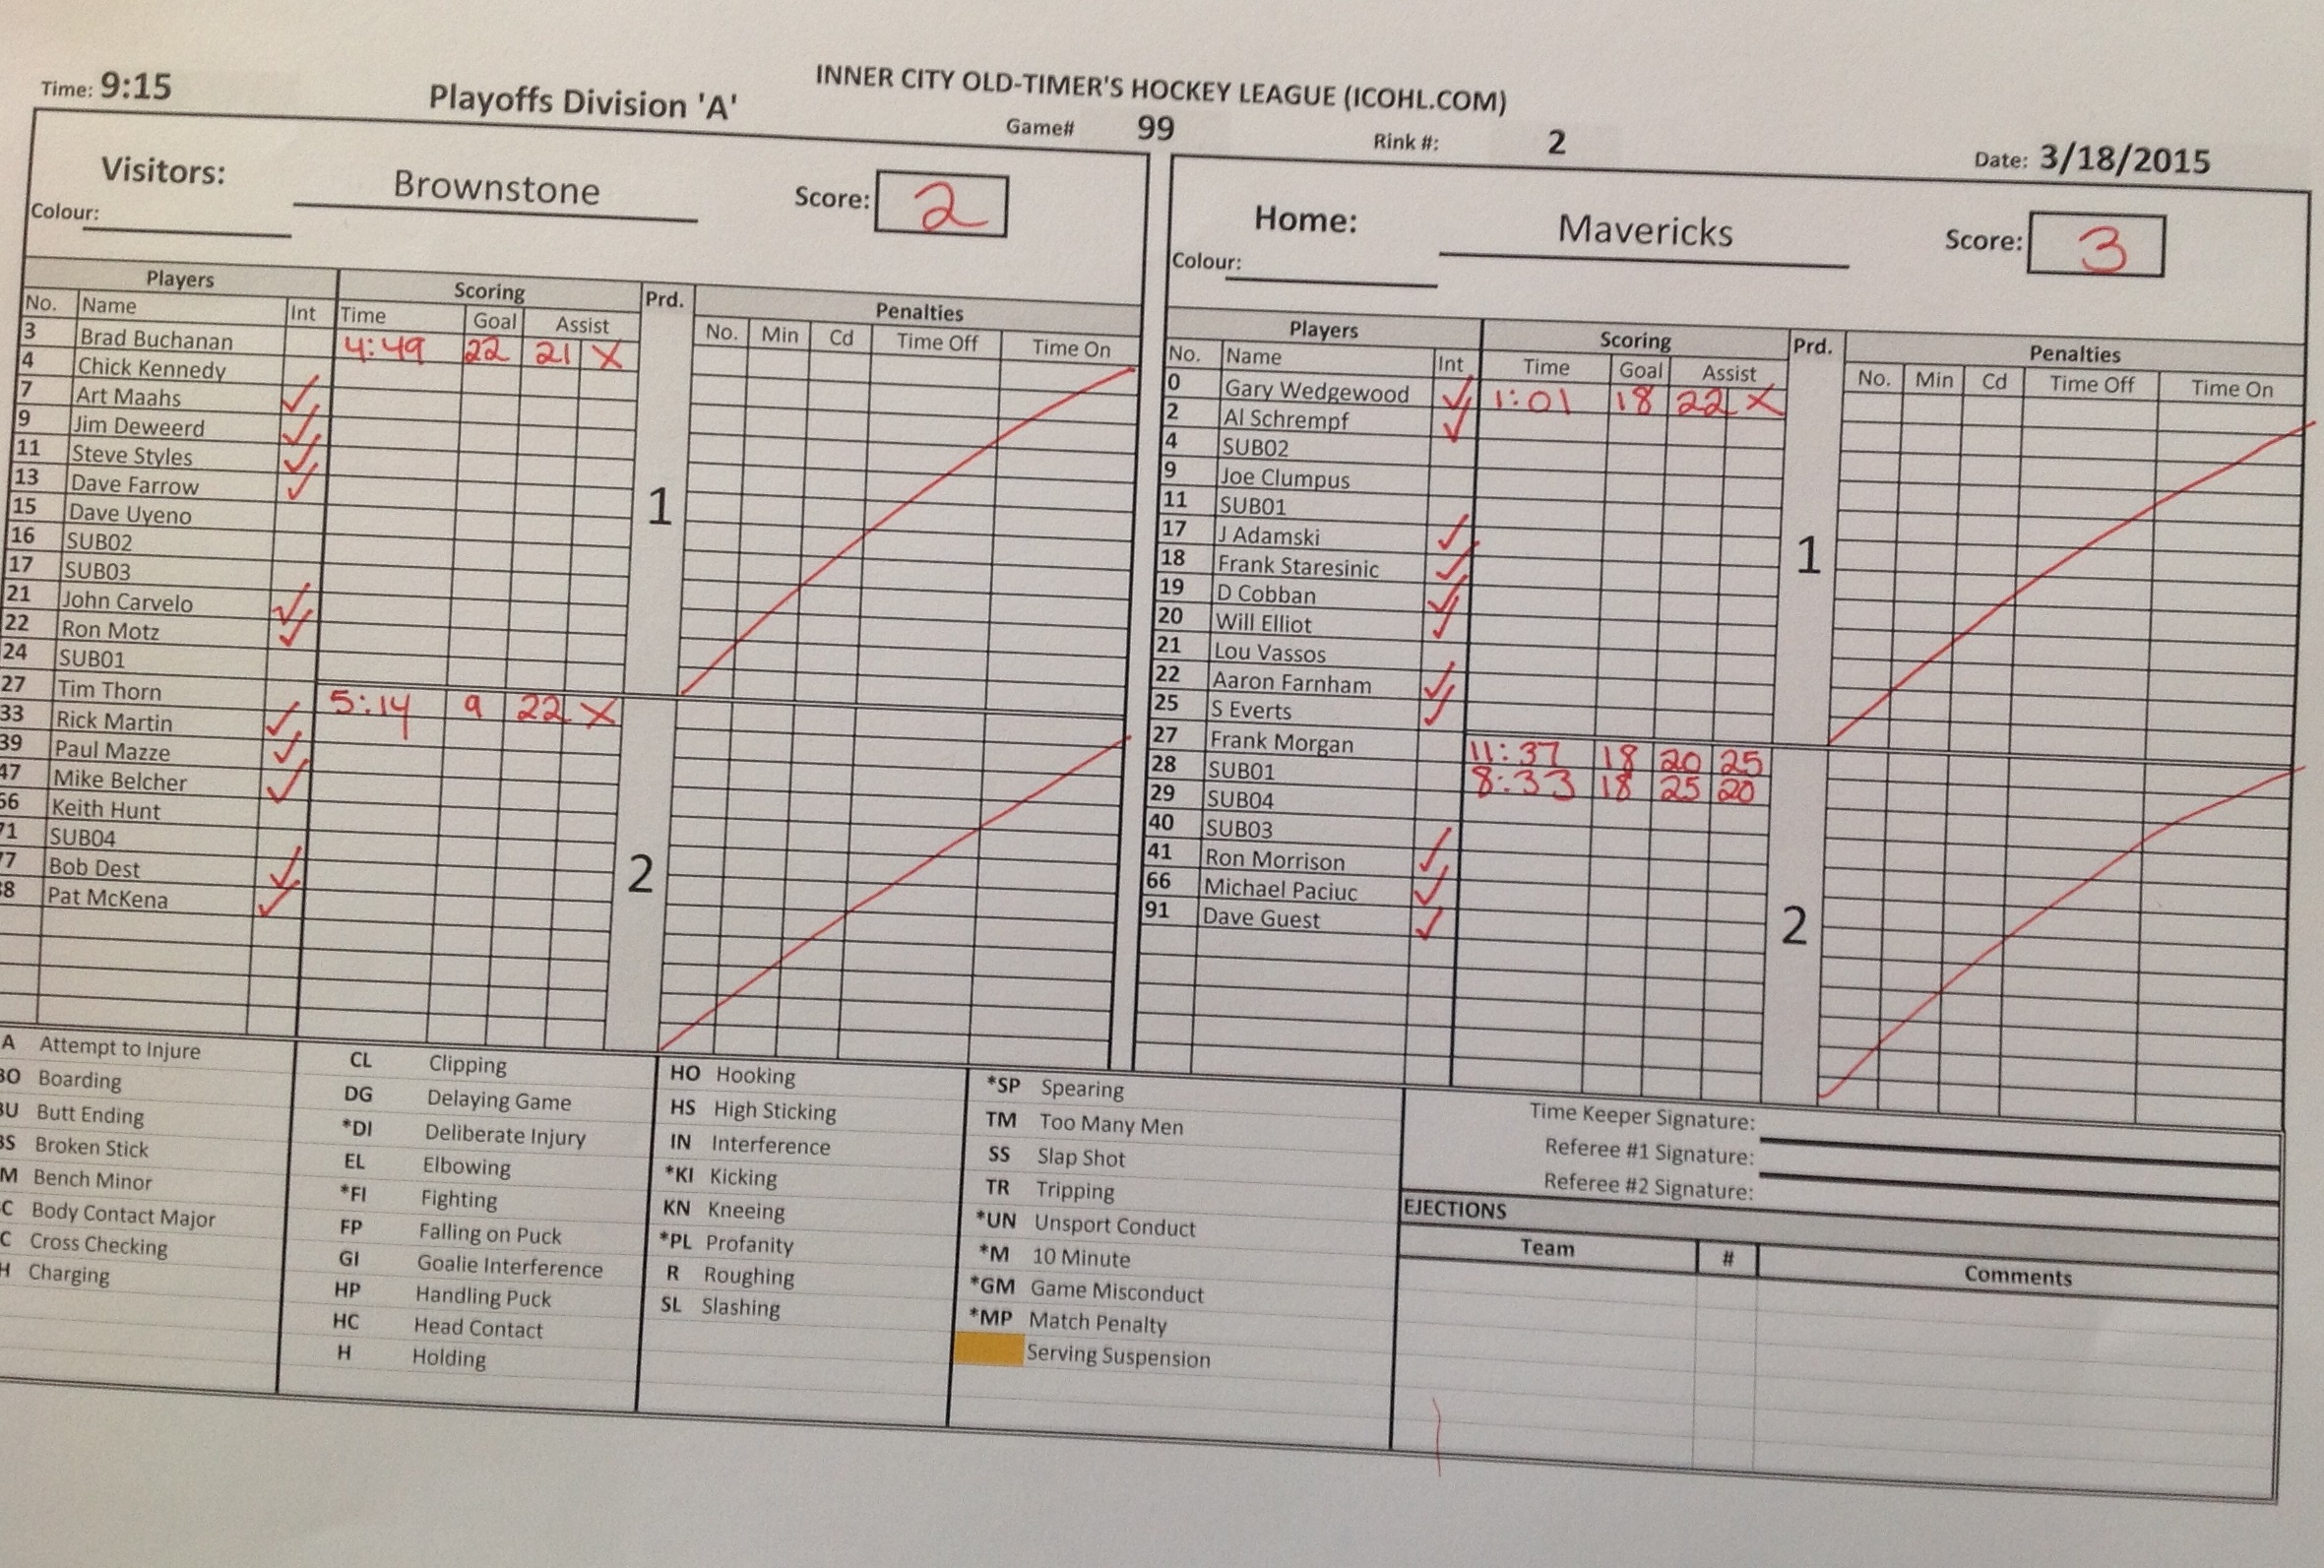 INNER CITY OLD-TIMER'S HOCKEY LEAGUE (ICOHL.COM)
Time: 9:15 Playoffs Division 'A' Game# 99 Rink #: 2 Date: 3/18/2015
Visitors: Brownstone Score: 2
Colour:
Players Scoring Prd. Penalties
No. Name Int Time Goal Assist No. Min Cd Time Off Time On
3 Brad Buchanan 4:49 22 21 X
4 Chick Kennedy
7 Art Maahs ✓
9 Jim Deweerd ✓
11 Steve Styles ✓
13 Dave Farrow ✓
15 Dave Uyeno 1
16 SUB02
17 SUB03
21 John Carvelo ✓
22 Ron Motz ✓
24 SUB01
27 Tim Thorn 5:14 9 22 X
33 Rick Martin ✓
39 Paul Mazze ✓
47 Mike Belcher ✓
66 Keith Hunt
71 SUB04
77 Bob Dest ✓ 2
88 Pat McKena ✓
Home: Mavericks Score: 3
Colour:
Players Scoring Prd. Penalties
No. Name Int Time Goal Assist No. Min Cd Time Off Time On
0 Gary Wedgewood ✓ 1:01 18 22 X
2 Al Schrempf ✓
4 SUB02
9 Joe Clumpus
11 SUB01
17 J Adamski ✓ 1
18 Frank Staresinic ✓
19 D Cobban ✓
20 Will Elliot ✓
21 Lou Vassos
22 Aaron Farnham ✓
25 S Everts ✓
27 Frank Morgan 11:37 18 20 25
28 SUB01 8:33 18 25 20
29 SUB04
40 SUB03
41 Ron Morrison ✓
66 Michael Paciuc ✓
91 Dave Guest ✓ 2
A Attempt to Injure
BO Boarding
BU Butt Ending
BS Broken Stick
M Bench Minor
C Body Contact Major
C Cross Checking
H Charging
CL Clipping
DG Delaying Game
*DI Deliberate Injury
EL Elbowing
*FI Fighting
FP Falling on Puck
GI Goalie Interference
HP Handling Puck
HC Head Contact
H Holding
HO Hooking
HS High Sticking
IN Interference
*KI Kicking
KN Kneeing
*PL Profanity
R Roughing
SL Slashing
*SP Spearing
TM Too Many Men
SS Slap Shot
TR Tripping
*UN Unsport Conduct
*M 10 Minute
*GM Game Misconduct
*MP Match Penalty
Serving Suspension
Time Keeper Signature:
Referee #1 Signature:
Referee #2 Signature:
EJECTIONS
Team # Comments